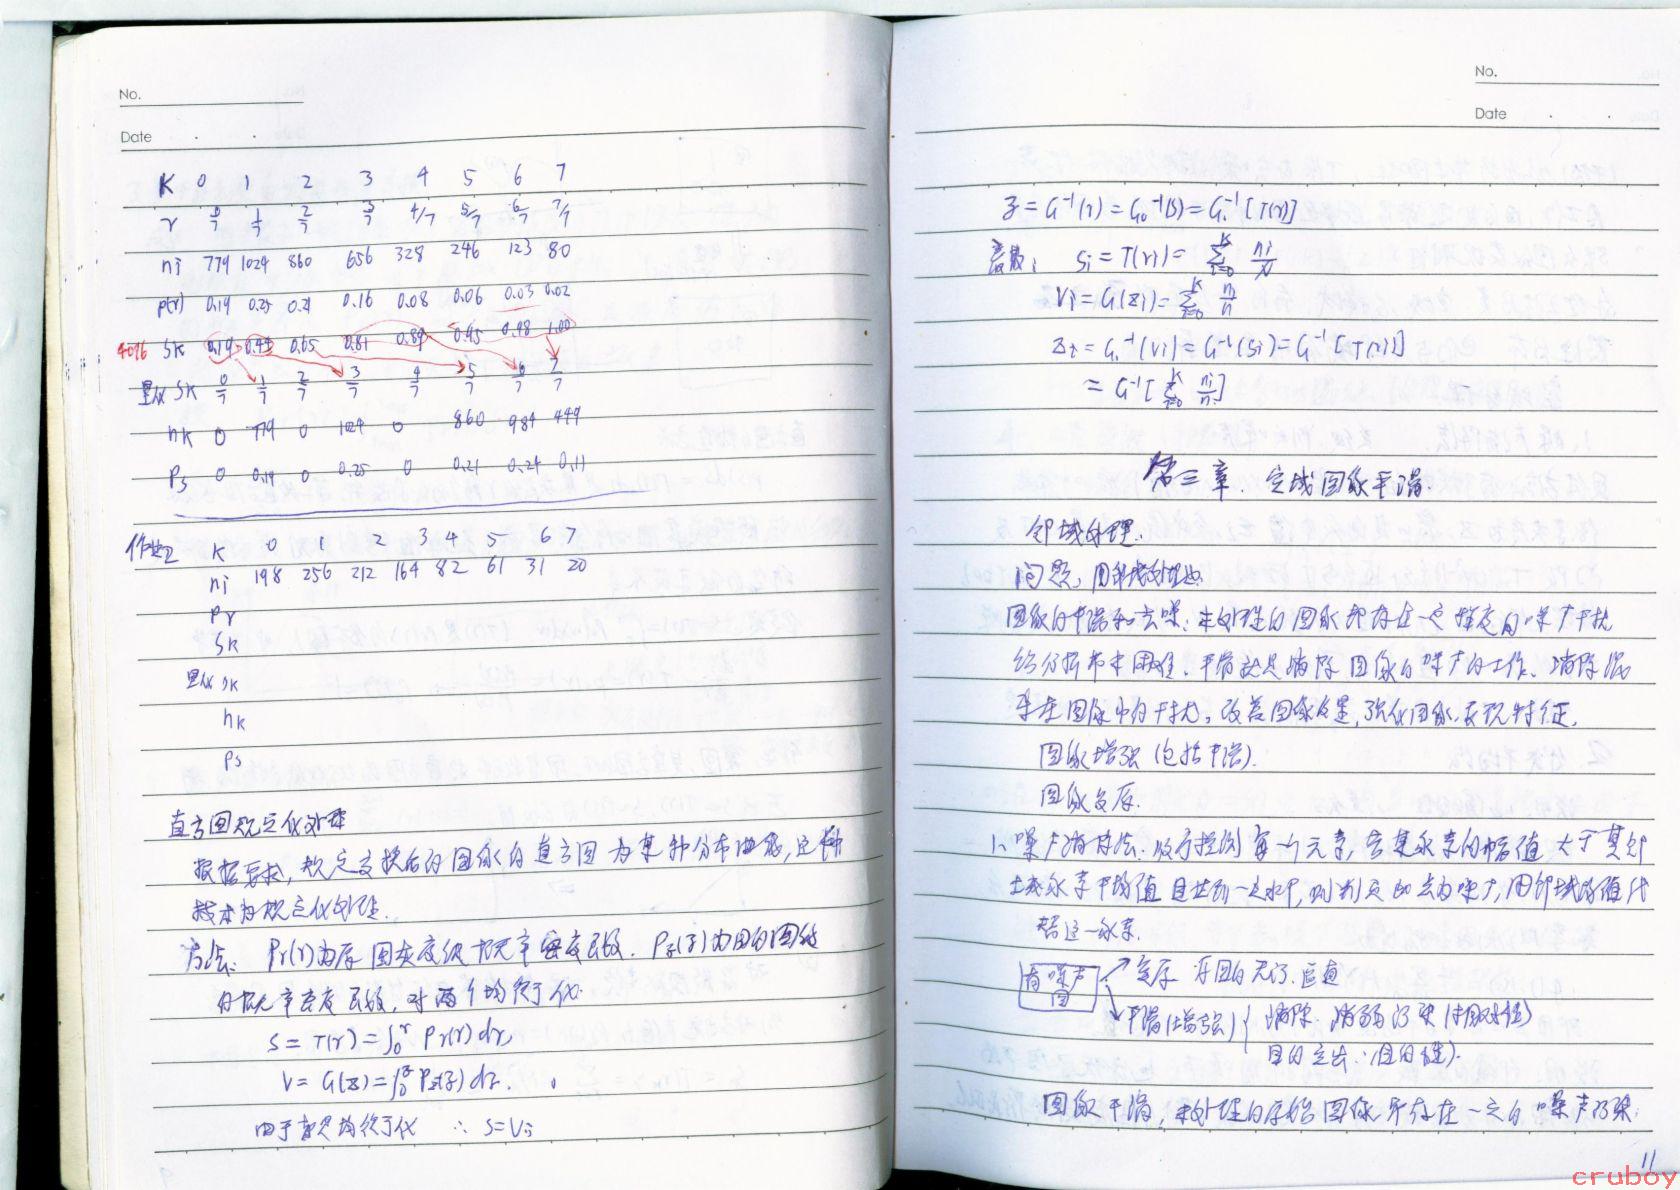 No.
Date
K 0 1 2 3 4 5 6 7
r 0/7 1/7 2/7 3/7 4/7 5/7 6/7 7/7
nj 779 1024 860 656 328 246 123 80
p(r) 0.19 0.25 0.21 0.16 0.08 0.06 0.03 0.02
4096 Sk 0.19 0.44 0.65 0.81 0.89 0.95 0.98 1.00
Sk 0/7 1/7 2/7 3/7 4/7 5/7 6/7 7/7
nk 0 779 0 1024 0 860 984 449
Ps 0 0.19 0 0.25 0 0.21 0.24 0.11
作业 K 0 1 2 3 4 5 6 7
nj 198 256 212 164 82 61 31 20
Pr
Sk
sk
nk
Ps
直方图规定化处理
根据要求,规定变换后的图像的直方图为某种分布
技术为规定化处理.
方法: Pr(r)为原图灰度级概率密度函数. Pz(z)为目的图像
的概率密度函数, 对两个均衡化
S = T(r) = ∫₀ʳ Pr(r) dr
V = G(z) = ∫₀ᶻ Pz(z) dz.
由于都是均衡化 ∴ S=V
No.
Date
z = G⁻¹(r) = G₀⁻¹(S) = G⁻¹[T(r)]
离散: Si = T(ri) = Σ ni/N
Vi = G(zi) = Σ n/n
Zi = G⁻¹(Vi) = G⁻¹(Si) = G⁻¹[T(ri)]
= G⁻¹[Σ ni/n]
第三章. 空域图像平滑.
邻域处理.
问题:
图像的平滑和去噪: 未处理的图像都存在一定程度的噪声干扰
给分析带来困难. 平滑就是消除图像的噪声的工作. 消除混
杂在图像中的干扰, 改善图像质量, 强化图像表现特征.
图像增强(包括平滑).
图像复原.
1. 噪声消除法: 顺序检测每一个元素, 若某像素的幅值大于其邻
域像素平均值且达到一定水平, 则判定此点为噪声, 用邻域均值代
替这一像素.
有噪声图
平滑(增强) 消除. 减弱污染
目的突出
图像平滑, 未处理的原始图像都存在一定的噪声污染.
11
cruboy